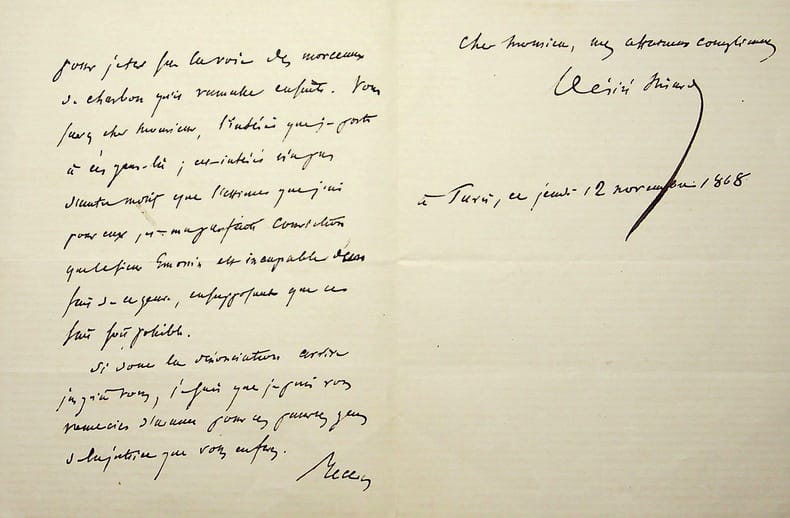 pour jeter sur la voie des morceaux
de charbon ramasse enfants. Vous
savez cher monsieur, l'intérêt que je porte
à ces gens-là ; cet intérêt n'a pas
d'autre motif que l'estime que j'ai
pour eux parfaite conviction
que le sieur est incapable d'un
fait de ce genre, en supposant que ce
fait soit possible.
Si donc la dénonciation arrive
jusqu'à vous, je sais que je puis vous
remercier d'avance pour ces pauvres gens
de la justice que vous en ferez.
Recevez
Cher Monsieur, mes affectueux compliments
Désiré Nisard
à Paris, ce jeudi 12 novembre 1868